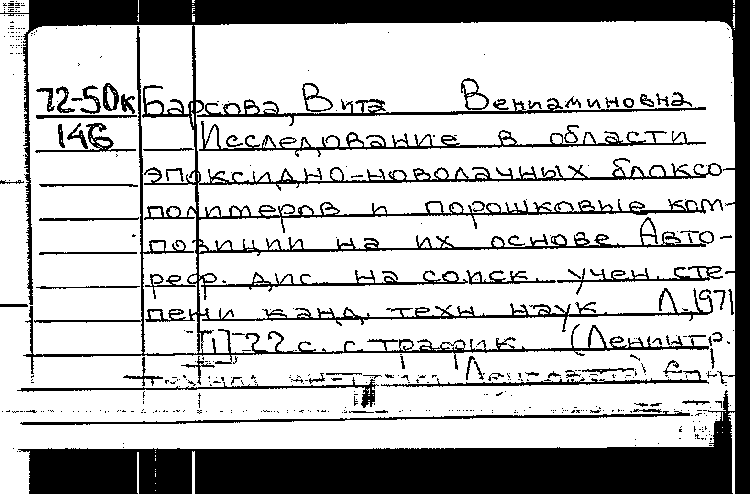 72-50к Барсова, Вита Вениаминовна
146 Исследование в области
эпоксидно-новолачных блоксо-
полимеров и порошковые ком-
позиции на их основе Авто-
реф. дис. на соиск. учен. сте-
пени канд. техн. наук. Л., 1971
[1], 22 с. с график. (Ленингр.
Ленсовета)